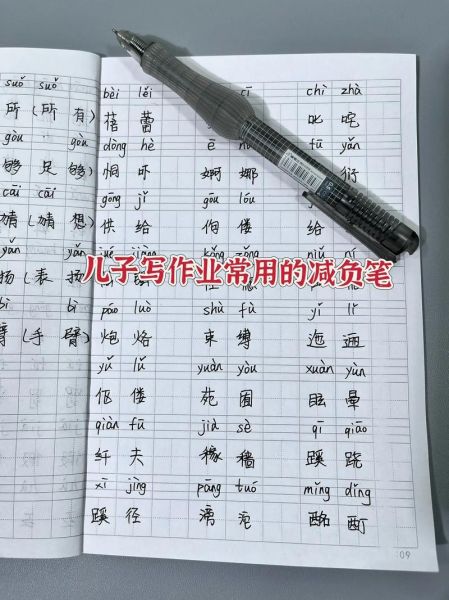 suǒ suǒ
所 (所 有)
gòu gòu
够 足 够)
cāi cāi
猜 (猜 想)
yáng
扬 (表 扬)
bì
(手 臂)
bèi lěi chì zhà
蓓 蕾 叱 咤
dòng hè ē fū yǎn
恫 吓 婀 娜 衍
gōng jǐ gōu lóu
供 给 佝 偻 给
儿子写作业常用的减负笔
páo luò shù fù yǐ lǐ
炮 烙 束 缚 迤 逦
yǔ lǚ yuàn yòu xuàn yùn
伛 偻 苑 囿 眩 晕
qiàn fū jià sè qī qiāo
纤 夫 稼 穑 蹊 跷
xī jìng pāng tuó mǐng dǐng
蹊 径 滂 沱 酩 酊
09